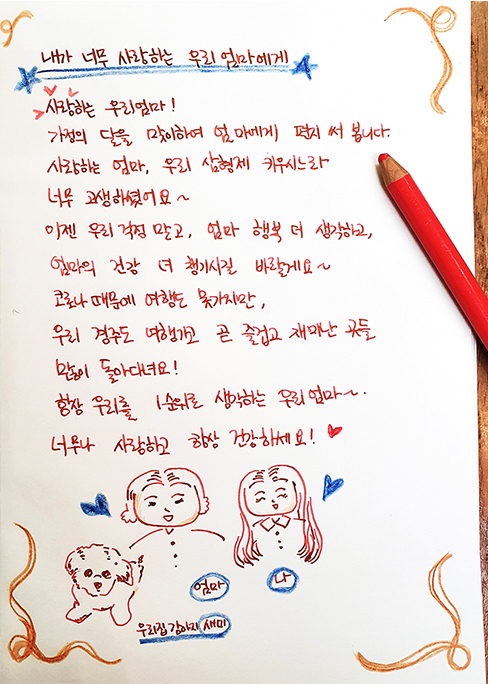 내가 너무 사랑하는 우리 엄마에게
사랑하는 우리엄마!
가정의 달을 맞이하여 엄마에게 편지 써 봅니다.
사랑하는 엄마, 우리 삼형제 키우시느라
너무 고생하셨어요~
이젠 우리 걱정 말고, 엄마 행복 더 생각하고,
엄마의 건강 더 챙기시길 바랄게요~
코로나 때문에 여행도 못가지만,
우리 경주도 여행가고 곧 즐겁고 재매난 곳들
많이 돌아다녀요!
항장 우리를 1순위로 생각하는 우리엄마~.
너무나 사랑하고 항상 건강하세요!
엄마
나
우리집 강아지 새미